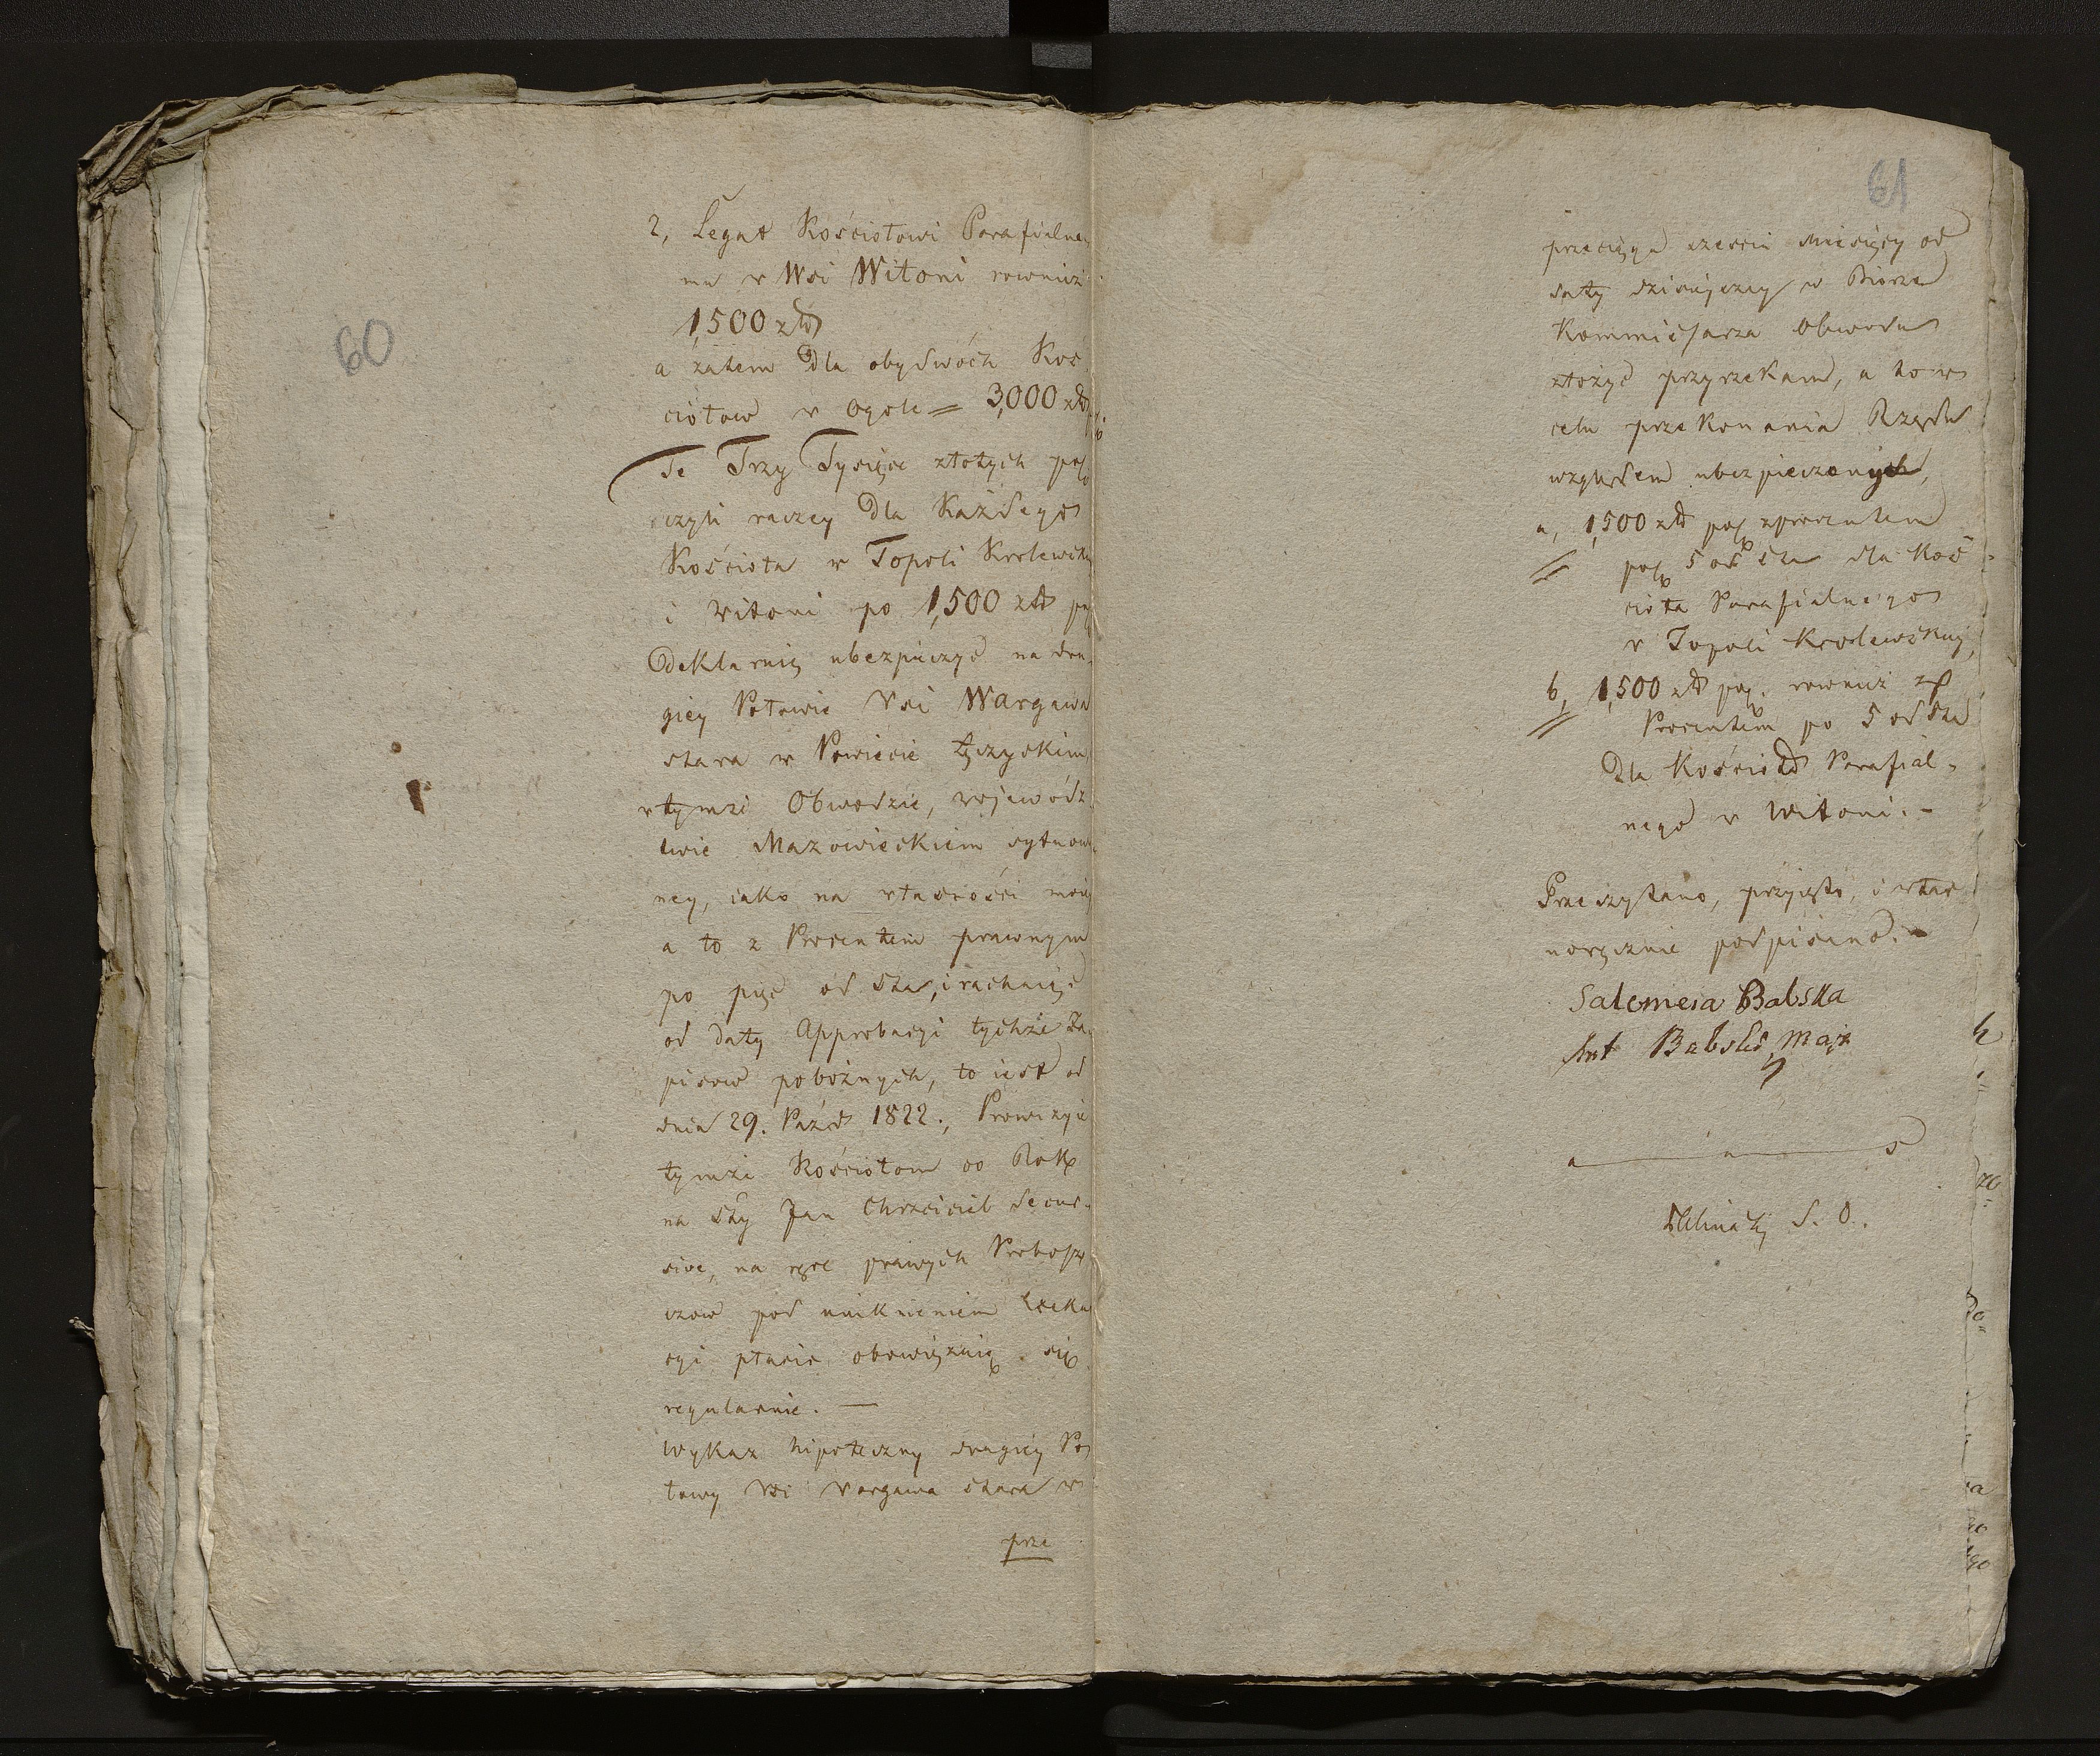 60
2, Legat Kościołowi Parafialne
mu w Wsi Witoni rownież
1,500 zł
a zatem dla obydwóch Koś
ciołow w ogole = 3,000 zł
Te Trzy Tysiące złotych pol
czyli raczey dla Każdego
Kościoła w Topoli Krolewski
i Witoni po 1,500 zł p
deklaruię ubezpieczyć na dru
giey Połowie Wsi Wargawa
stara w Powiecie Łęczyckim
w tymże Obwodzie, wojewódz
twie Mazowieckiem sytuowa
ney, iako na własności moiey
a to z Procentem prawnym
po pięć od sta, i rachuiąc
od daty Approbacyi tychże Za
pisow pobożnych, to iest od
dnia 29. Paźd 1822., Prowizyie
tymże Kościołom co Rok
na Sty Jan Chrzciciel decur
sive, na ręce prawych Probosz
czow pod uniknieniem Exeku
cyi płacić obowiązuię się
regularnie. —
Wykaz hipoteczny drugiey Po
łowy Wsi Wargawa stara w
prze
61
przeciągu sześciu Miesięcy od
daty dzisieyszey w Biorze
Kommissarza Obwodu
złożyć przyrzekam, a to w
celu przekonania Rządu
względem ubezpieczonych,
a, 1,500 zł pol z procentem
po 5 od sta dla Koś
cioła Parafialnego
w Topoli Krolewskiey,
b, 1,500 zł pol. rownież z
Procentem po 5 od sta
dla Kościoła Parafial-
nego w Witoni. -
Przeczytano, przyięto, i włas
noręcznie podpisano. -
Salomeia Babska
Ant Babski Mąż
S. O.